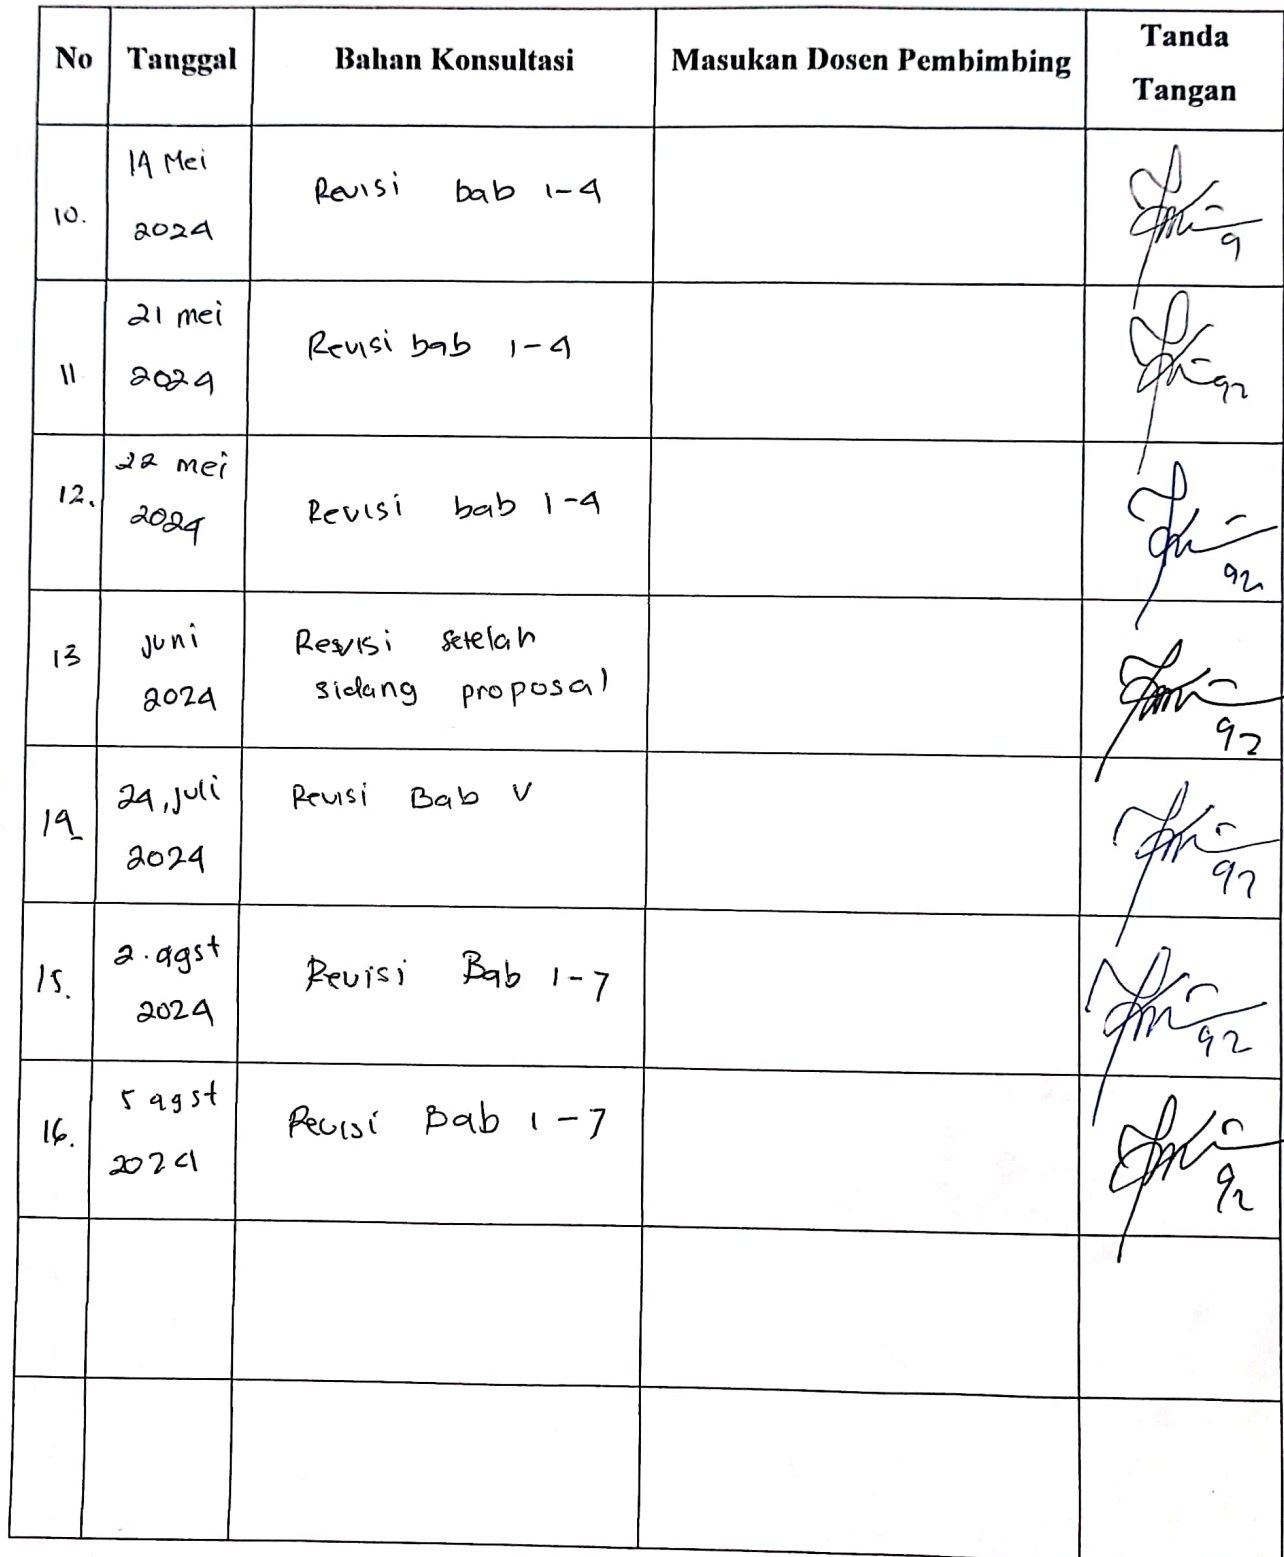 No Tanggal Bahan Konsultasi Masukan Dosen Pembimbing Tanda
Tangan
10. 14 Mei
2024
Revisi bab 1-4
11 21 mei
2024
Revisi bab 1-4
12. 22 mei
2024
Revisi bab 1-4
13 juni
2024
Revisi setelah
sidang proposal
14 24, juli
2024
Revisi Bab V
15. 2. agst
2024
Revisi Bab 1-7
16. 5 agst
2024
Revisi Bab 1-7